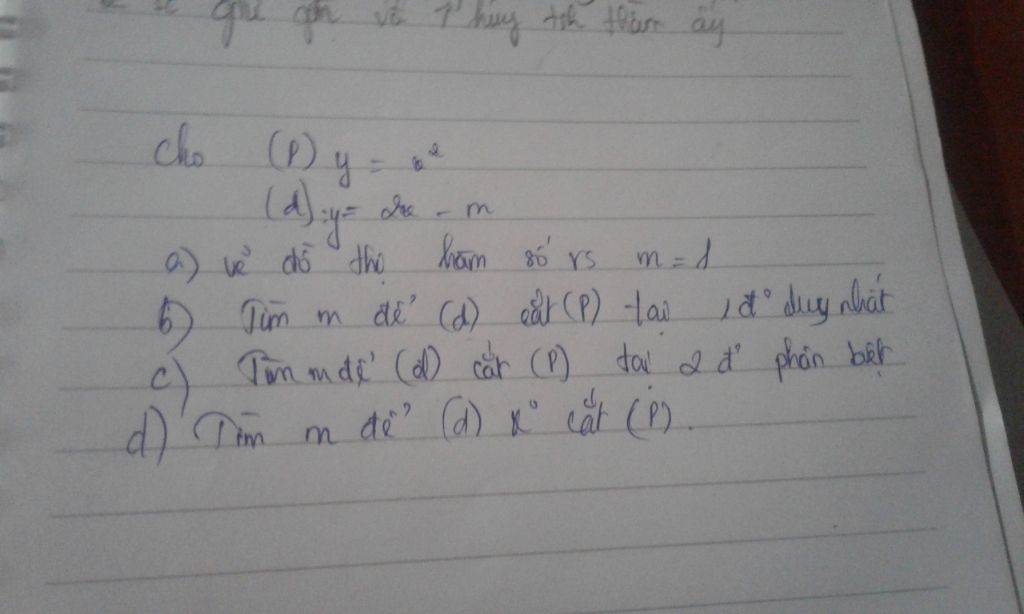 ghi gần về 1 thủy tth thâm ấy
Cho (P) y = x²
(d): y = 2x - m
a) vẽ đồ thị hàm số vs m = 1
b) Tìm m để (d) cắt (P) tại 1 đ° duy nhất
c) Tìm m để (d) cắt (P) tại 2 đ° phân biệt
d) Tìm m để (d) k° cắt (P).